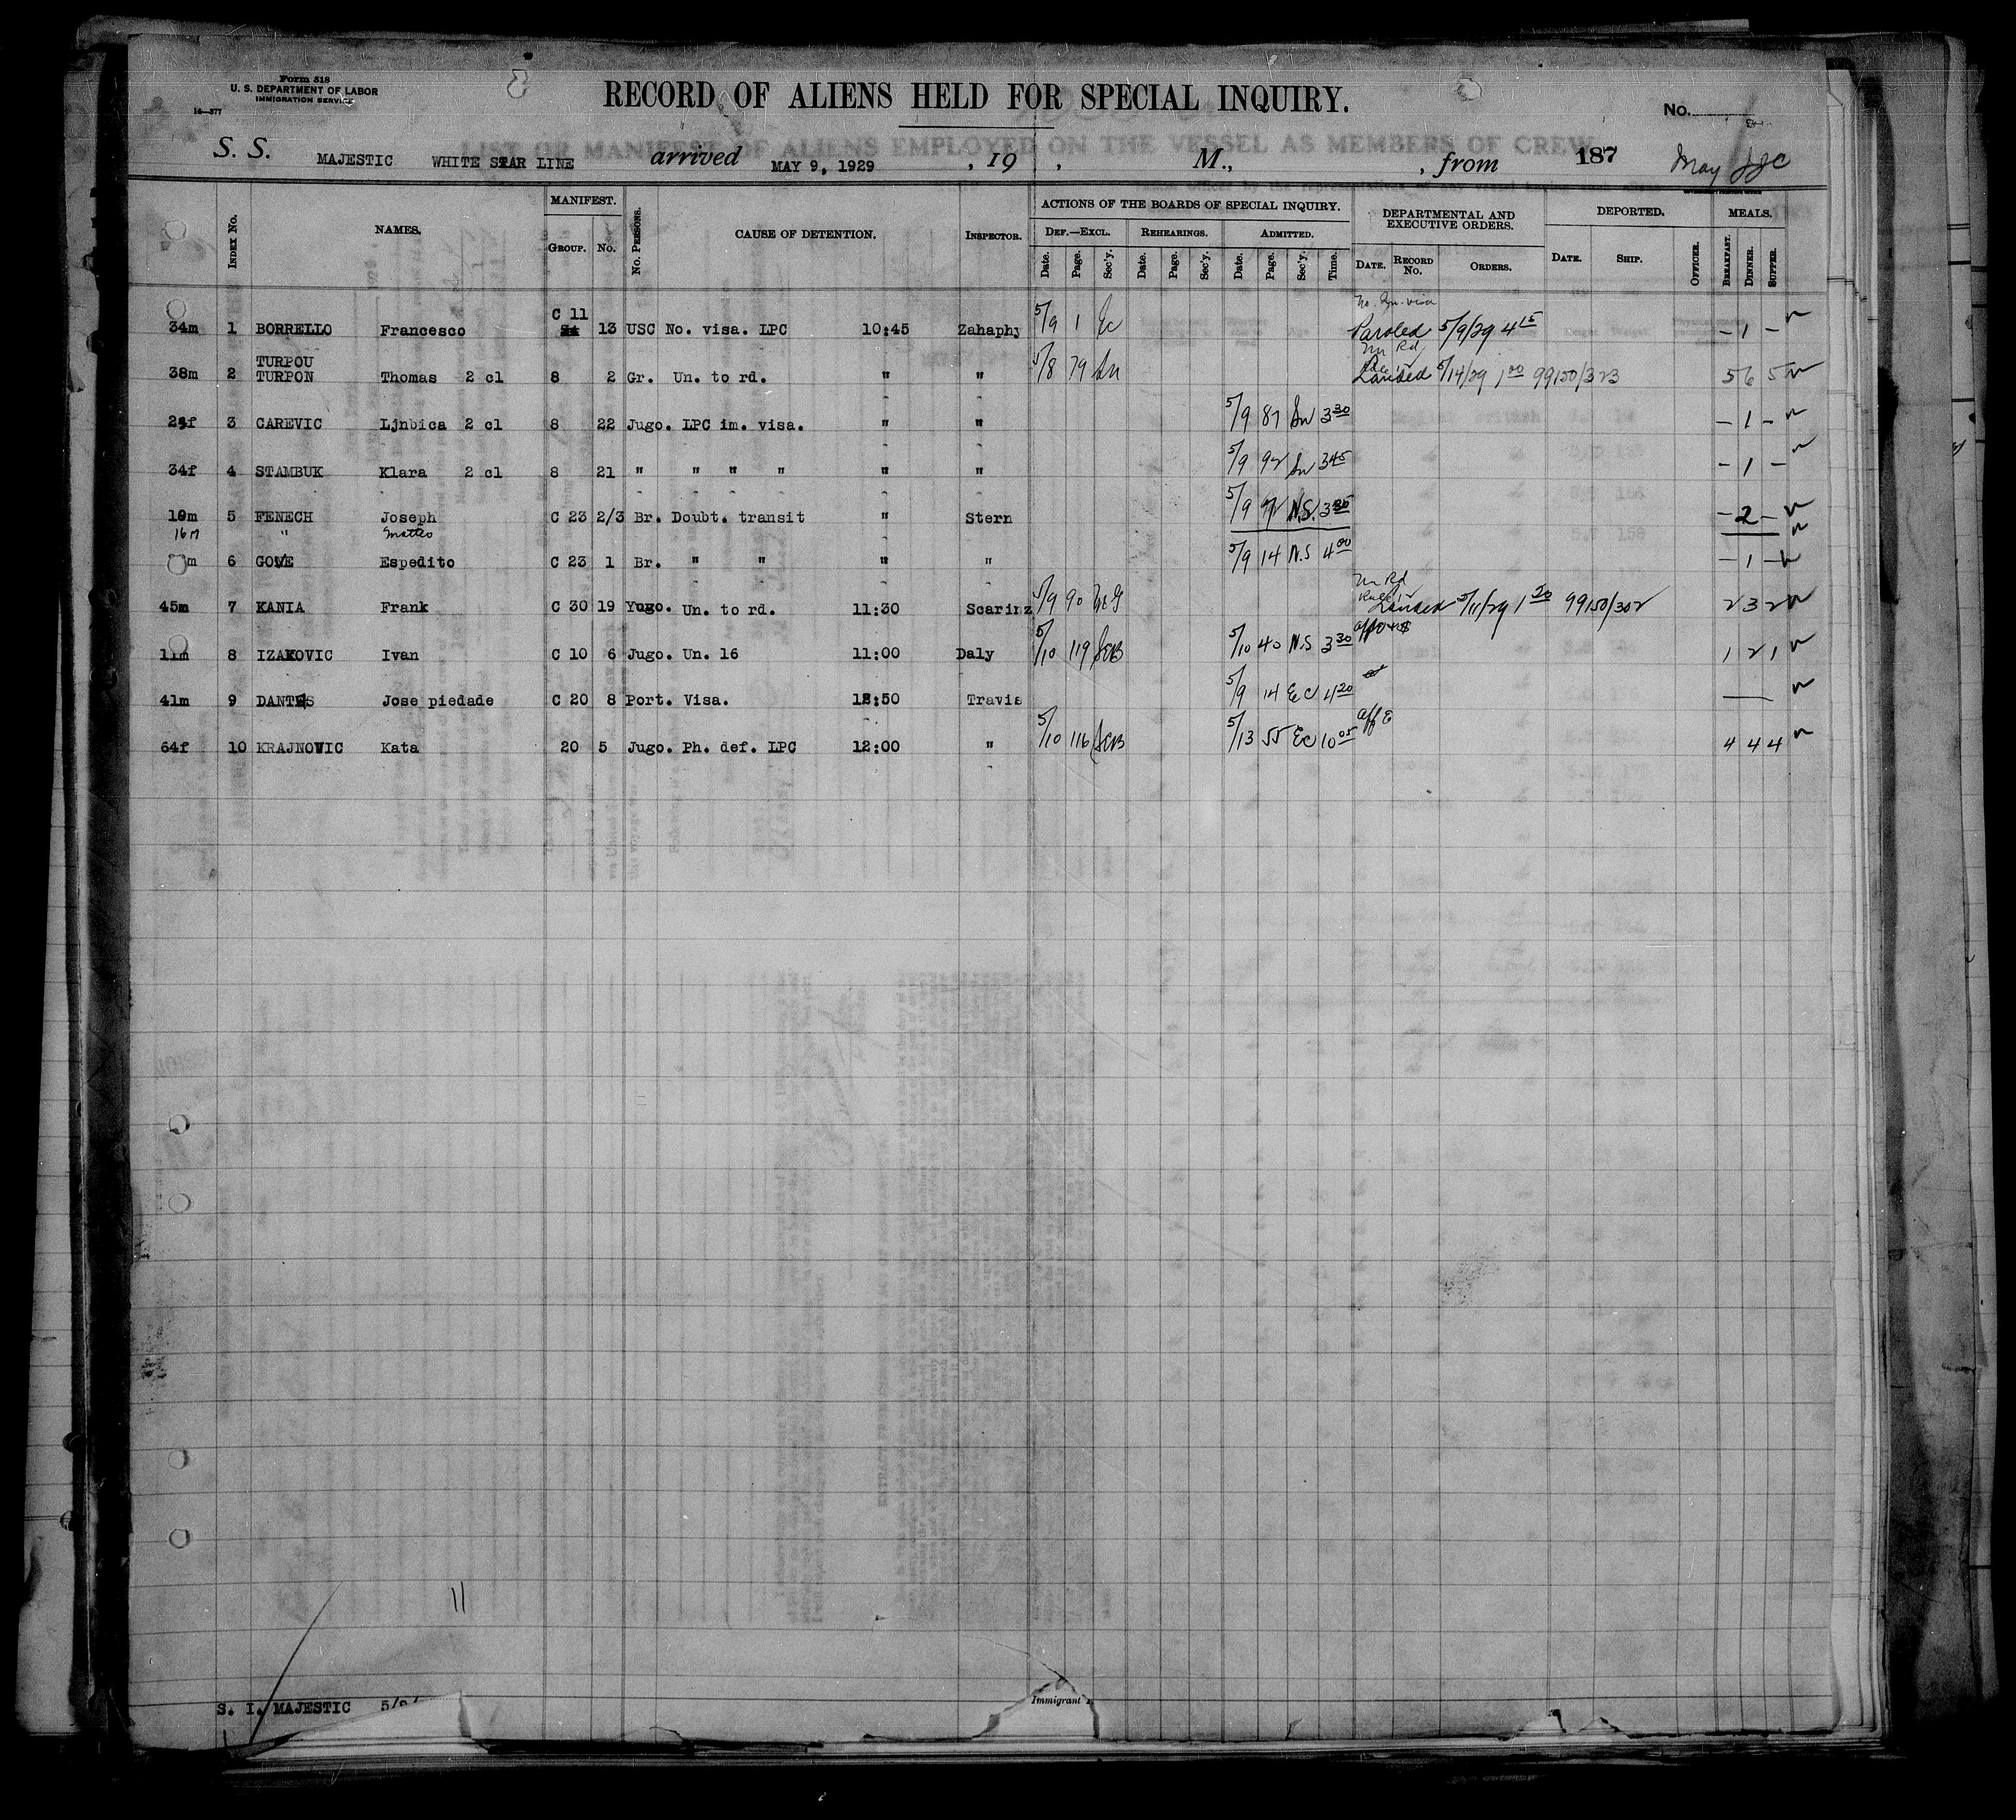 Form 518
U. S. DEPARTMENT OF LABOR
IMMIGRATION SERVICE
14—377
RECORD OF ALIENS HELD FOR SPECIAL INQUIRY.
No.
LIST OR MANIFEST OF ALIENS EMPLOYED ON THE VESSEL AS MEMBERS OF CREW
S. S. MAJESTIC WHITE STAR LINE arrived MAY 9, 1929 , 19 , M., , from 187 May
INDEX No. NAMES. MANIFEST. GROUP. No. No. PERSONS. CAUSE OF DETENTION. INSPECTOR. ACTIONS OF THE BOARDS OF SPECIAL INQUIRY. DEPARTMENTAL AND EXECUTIVE ORDERS. DEPORTED. MEALS.
DEF.—EXCL. REHEARINGS. ADMITTED.
Date. Page. Sec'y. Date. Page. Sec'y. Date. Page. Sec'y. Time. DATE. RECORD No. ORDERS. DATE. SHIP. OFFICER. BREAKFAST. DINNER. SUPPER.
34m 1 BORRELLO Francesco C 11 13 USC No. visa. LPC 10:45 Zahaphy 5/9 1 Ec Paroled 5/9/29 4 15 – 1 –
TURPOU
38m 2 TURPON Thomas 2 cl 8 2 Gr. Un. to rd. " " 5/8 79 Landed 5/14/29 1 00 99150/323 5 6 5
24f 3 CAREVIC Ljnbica 2 cl 8 22 Jugo. LPC im. visa. " " 5/9 87 3 30 – 1 –
34f 4 STAMBUK Klara 2 cl 8 21 " " " " " " 5/9 92 3 45 – 1 –
19m 5 FENECH Joseph C 23 2/3 Br. Doubt. transit " Stern 5/9 N.S. – 2 –
16m " Matteo
m 6 Espedito C 23 1 Br. " " " " 5/9 14 N.S 4 00 – 1 –
45m 7 KANIA Frank C 30 19 Yugo. Un. to rd. 11:30 Scarinz 5/9 90 Landed 5/11/29 1 20 99150/302 2 3 2
11m 8 IZAKOVIC Ivan C 10 6 Jugo. Un. 16 11:00 Daly 5/10 119 SEB 5/10 40 N.S 3 30 1 2 1
41m 9 DANTES Jose piedade C 20 8 Port. Visa. 12:50 Travis 5/9 14 EC 4 20
64f 10 KRAJNOVIC Kata 20 5 Jugo. Ph. def. LPC 12:00 " 5/10 116 SEB 5/13 55 EC 10 05 4 4 4
11
S. I. MAJESTIC 5/9/
Immigrant